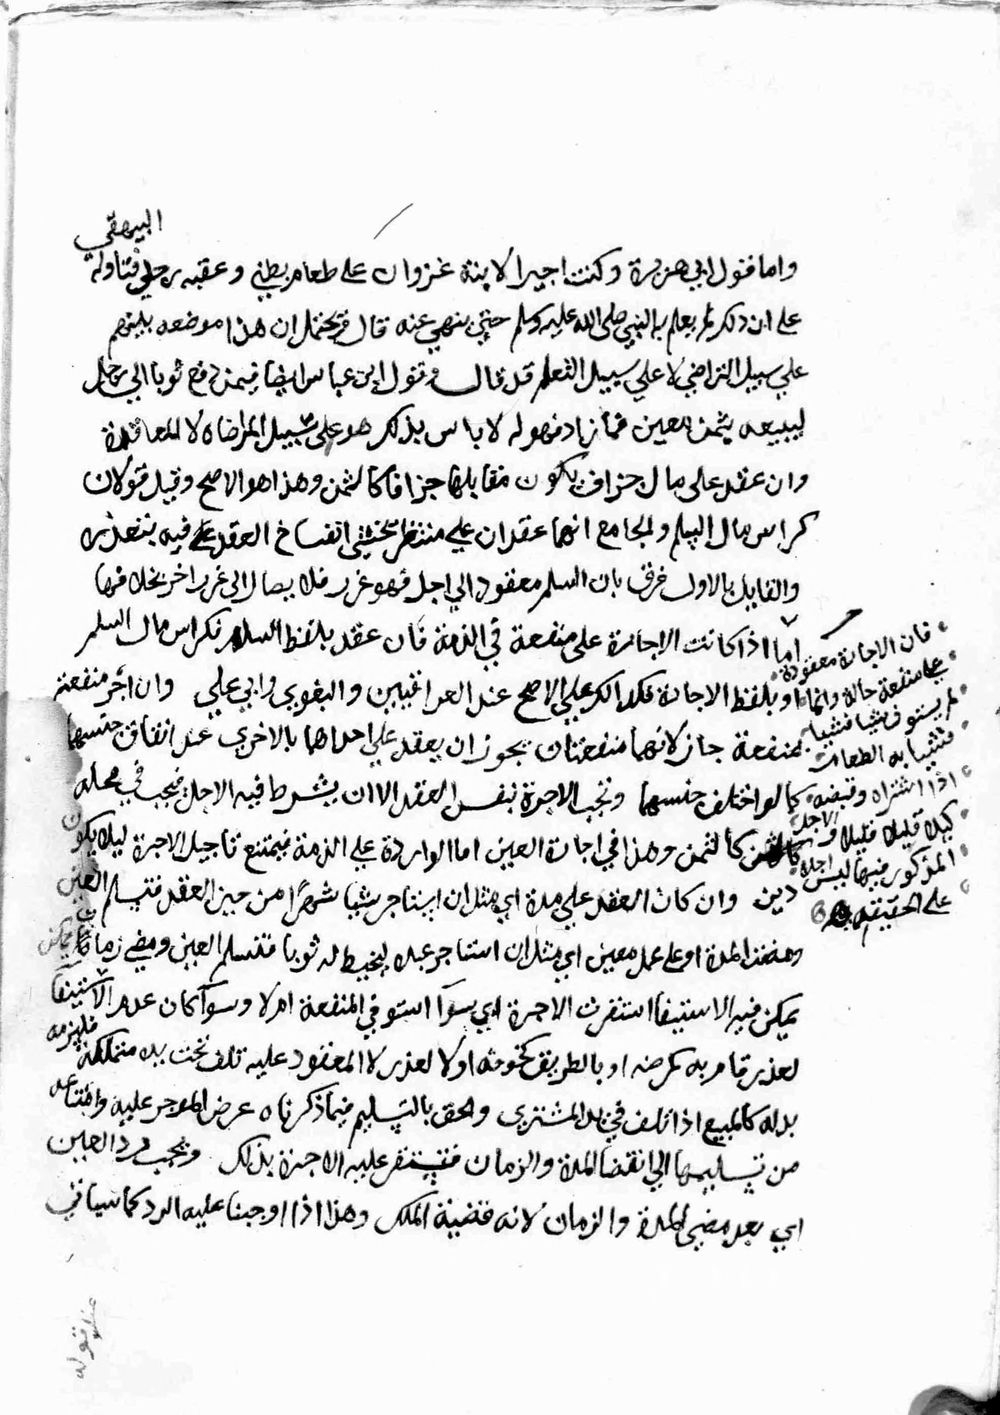 البيهقي
واما قول ابي هريرة وكنت اجيرا لابنة غزوان على طعام بطني وعقبه رجلي فتاوله
على ان ذلك لم يعلم به النبي صلى الله عليه وسلم حتى ينهي عنه قال ويحتمل ان هذا موضعه بينهم
علي سبيل التراضي لا علي سبيل التعلم قد قال وقول ابن عباس ايضا فيمن دفع ثوبا الي رجل
ليبيعه بثمن معين فما زاد فهو له لا باس بذلك هو على سبيل المراضاه لا المعاقدة
وان عقد على مال جزاف يكون مقابلها جزافا كالثمن وهذا هو الاصح وقيل قولان
كراس مال السلم والجامع انهما عقدان علي منتظر يخشى انفساخ العقد فيه بتعذر
والقايل بالاول فرق بان السلم معقود الي اجل فهو غرر فلا يصار الي غرر اخر بخلافها
اما اذا كانت الاجارة على منفعة في الذمة فان عقد بلفظ السلم فكراس مال السلم
او بلفظ الاجارة فكذلك علي الاصح عند العراقيين والبغوي وابي علي وان اجر منفعة
بمنفعة جاز لانهما منفعتان يجوز ان يعقد علي احداهما بالاخري عند اتفاق جنسهما
كما لو اختلف جنسهما وتجب الاجرة بنفس العقد الا ان يشرط فيه الاجل فيجب في محله
كالثمن وهذا في اجارة العين اما الواردة علي الذمة فيمتنع تاجيل الاجرة ليلا يكون
دين وان كان العقد علي مدة اي مثل ان استاجر شيا شهرا من حين العقد فتسلم العين
ومضت المدة او على عمل معين اي مثل ان استاجر عبدا ليخيط له ثوبا فتسلم العين ومضي زمان
يمكن فيه الاستيفا استقرت الاجرة اي سوآ استوفي المنفعة ام لا وسوآ كان عدم الاستيفا
لعذر قام به كمرضه او بالطريق كخوفه او لا لعذر لا المعقود عليه تلف تحت يد متملكه فلزمه
بدله كالمبيع اذا تلف في يد المشتري والحق بالتسليم فيما ذكرناه عرض الموجر عليه وامتناعه
من تسليمها الي انقضا المدة والزمان فتستقر عليه الاجرة بذلك ويجب رد العين
اي بعد مضي المدة والزمان لانه قضية الملك وهذا اذا اوجبنا عليه الرد كما سياتي
فان الاجارة معقودة
علي منفعة حالة وانما
لم يستوف شيا فشيا
فشبها به الطعام
اذا اشتراه وقبضه
كيلا قليلا قليلا والاجل
المذكور فيها ليس اجلا
على الحقيقه
عند قوله